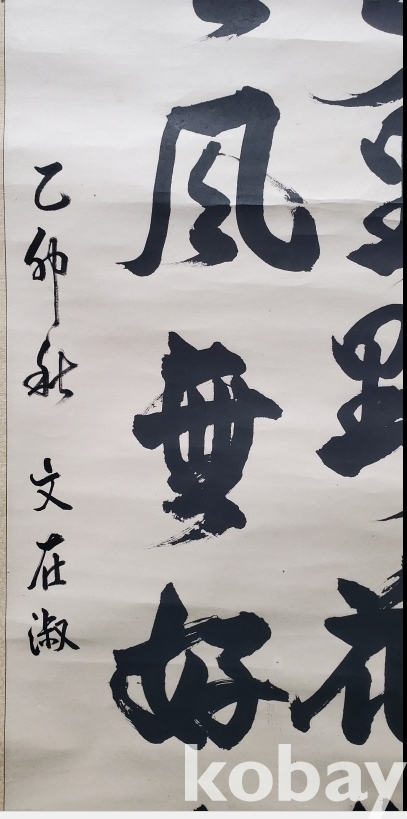 野花
風無好
乙卯秋 文在淑
kobay